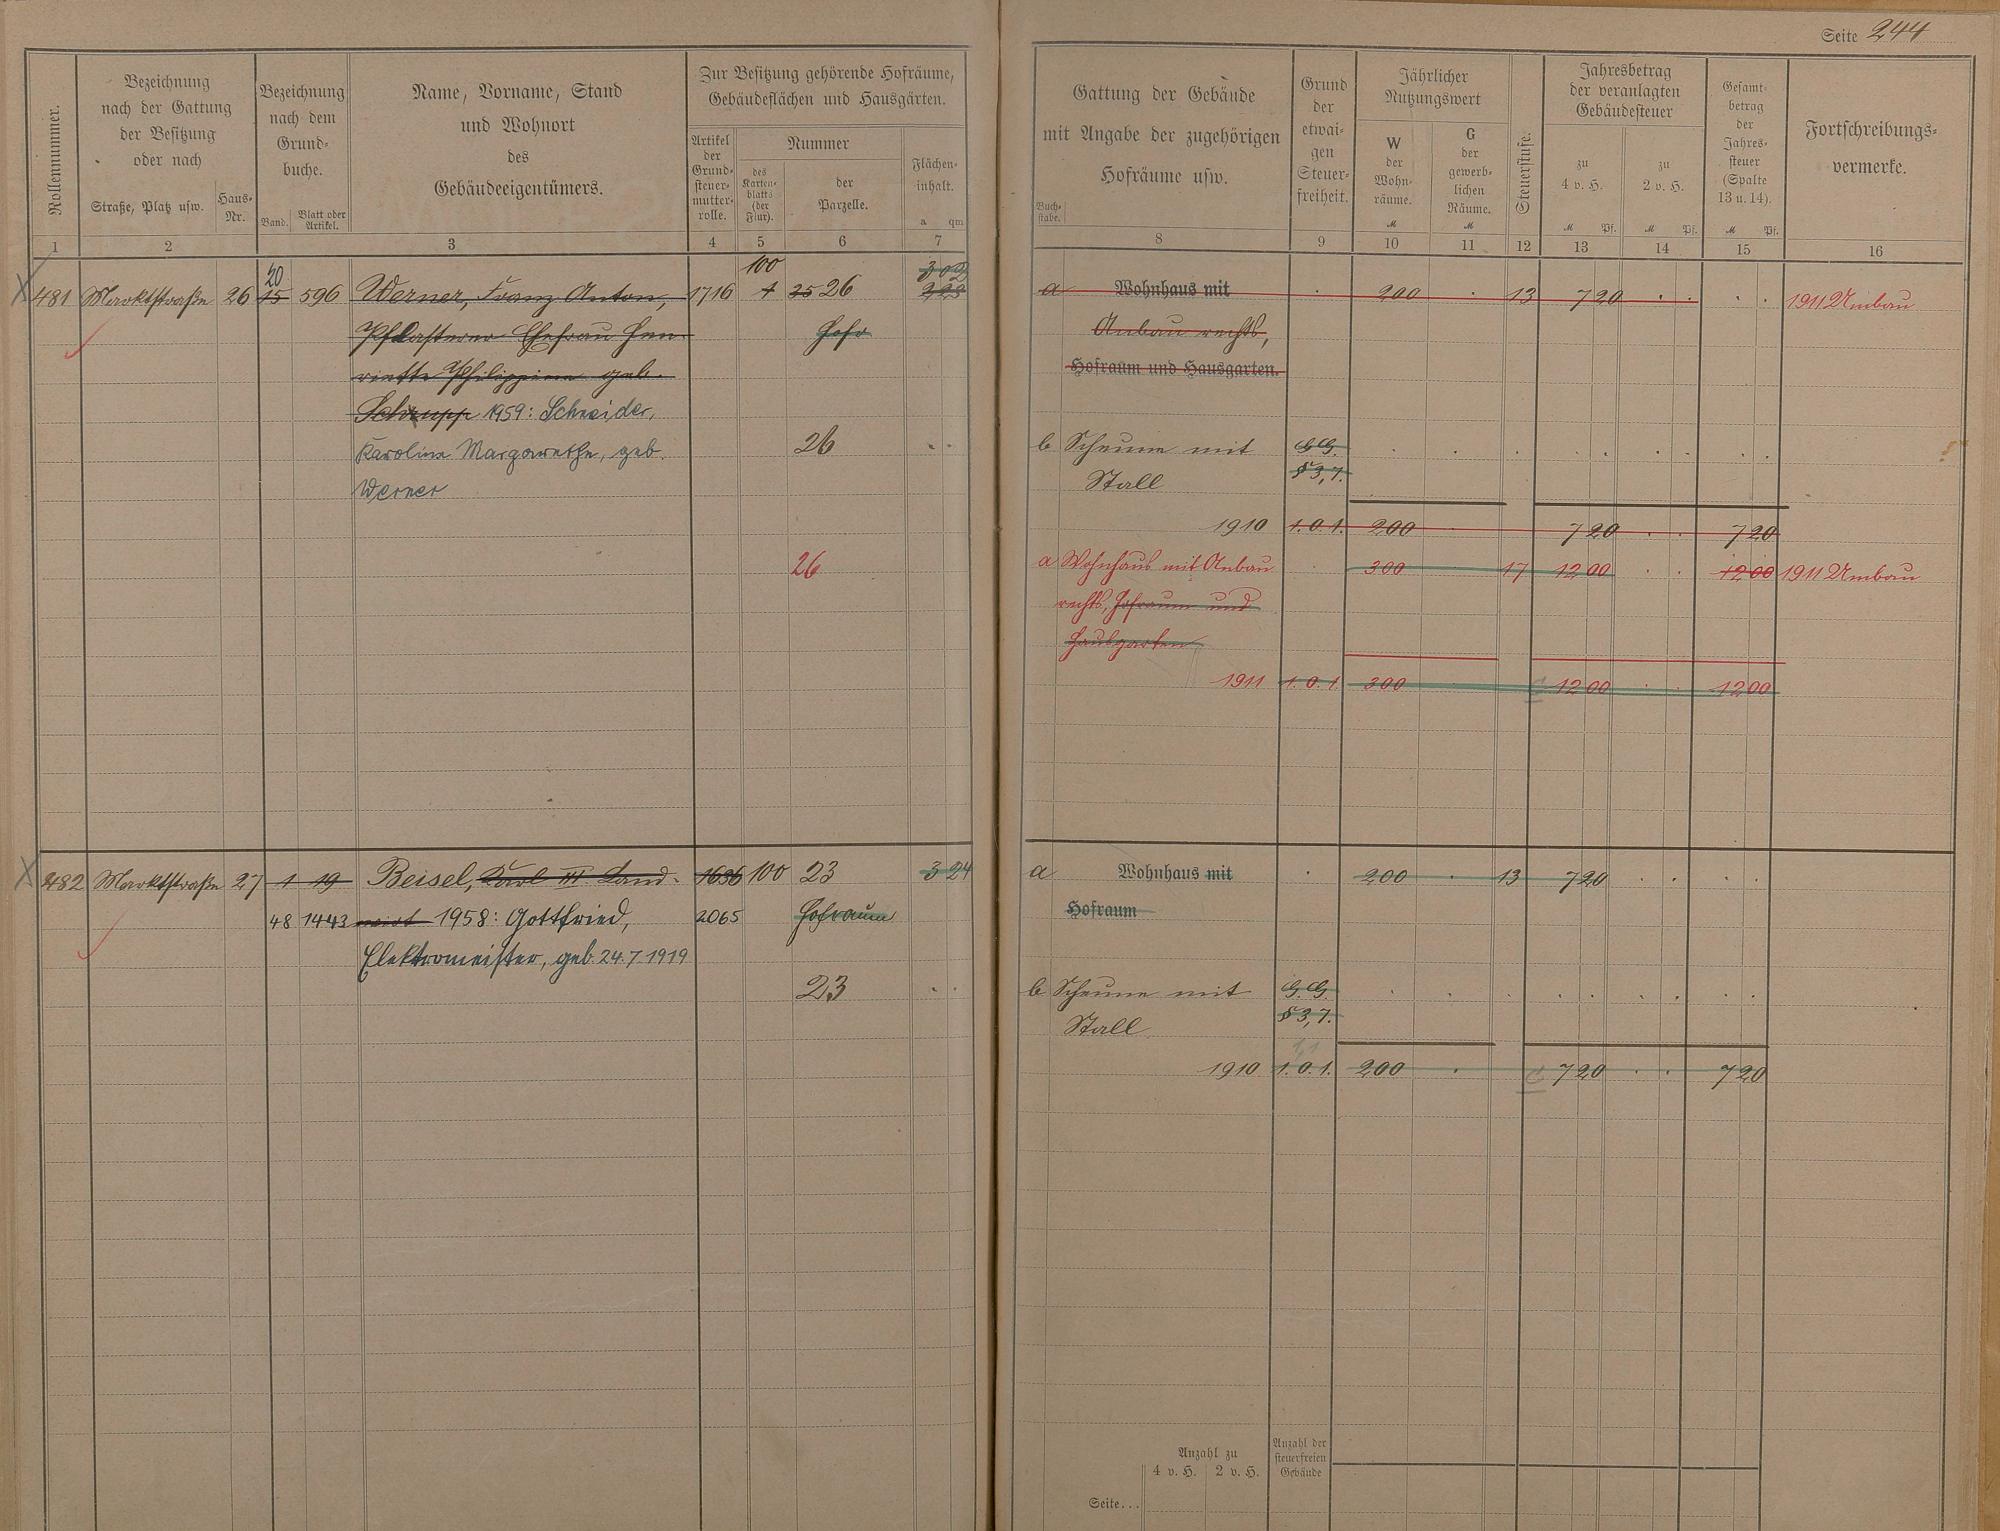 Seite 244
Rollennummer.
Bezeichnung
nach der Gattung
der Besitzung
oder nach
Straße, Platz usw.
Haus-
Nr.
Bezeichnung
nach dem
Grund-
buche.
Band.
Blatt oder
Artikel.
Name, Vorname, Stand
und Wohnort
des
Gebäudeeigentümers.
Zur Besitzung gehörende Hofräume,
Gebäudeflächen und Hausgärten.
Artikel
der
Grund-
steuer-
mutter-
rolle.
Nummer
des
Karten-
blatts
(der
Flur).
der
Parzelle.
Flächen-
inhalt.
a qm
1 2 3 4 5 6 7
Gattung der Gebäude
mit Angabe der zugehörigen
Hofräume usw.
Buch-
stabe.
Grund
der
etwai-
gen
Steuer-
freiheit.
Jährlicher
Nutzungswert
W
der
Wohn-
räume.
M
G
der
gewerb-
lichen
Räume.
M
Steuerstufe.
Jahresbetrag
der veranlagten
Gebäudesteuer
zu
4 v. H.
M Pf.
zu
2 v. H.
M Pf.
Gesamt-
betrag
der
Jahres-
steuer
(Spalte
13 u. 14).
M Pf.
Fortschreibungs-
vermerke.
8 9 10 11 12 13 14 15 16
20 100
481 Marktstraße 26 15 596 Werner, Franz Anton, 1716 1 25 26
Pflasterer Ehefrau Hen-
riette Philippine geb.
Schrupp 1959: Schneider,
Karoline Margarethe, geb.
Werner
Hofr
26
26
a Wohnhaus mit 200 13 7 20 1911 Umbau
Anbau rechts,
Hofraum und Hausgarten.
b Scheune mit G.G.
Stall § 3,7.
1910 1. 0. 1. 200 7 20 7 20
a Wohnhaus mit Anbau 300 17 12 00 12 00 1911 Umbau
rechts, Hofraum und
Hausgarten
1911 1. 0. 1. 300 12 00 12 00
482 Marktstraße 27 1 19 Beisel, Karl III. Land- 1636 100 23 3 24
48 1443 wirt 1958: Gottfried, 2065 Hofraum
Elektromeister, geb. 24.7.1919
23
a Wohnhaus mit 200 13 7 20
Hofraum
b Scheune mit G.G.
Stall § 3,7.
1910 1. 0. 1. 200 7 20 7 20
Anzahl zu
4 v. H. 2 v. H.
Anzahl der
steuerfreien
Gebäude
Seite...